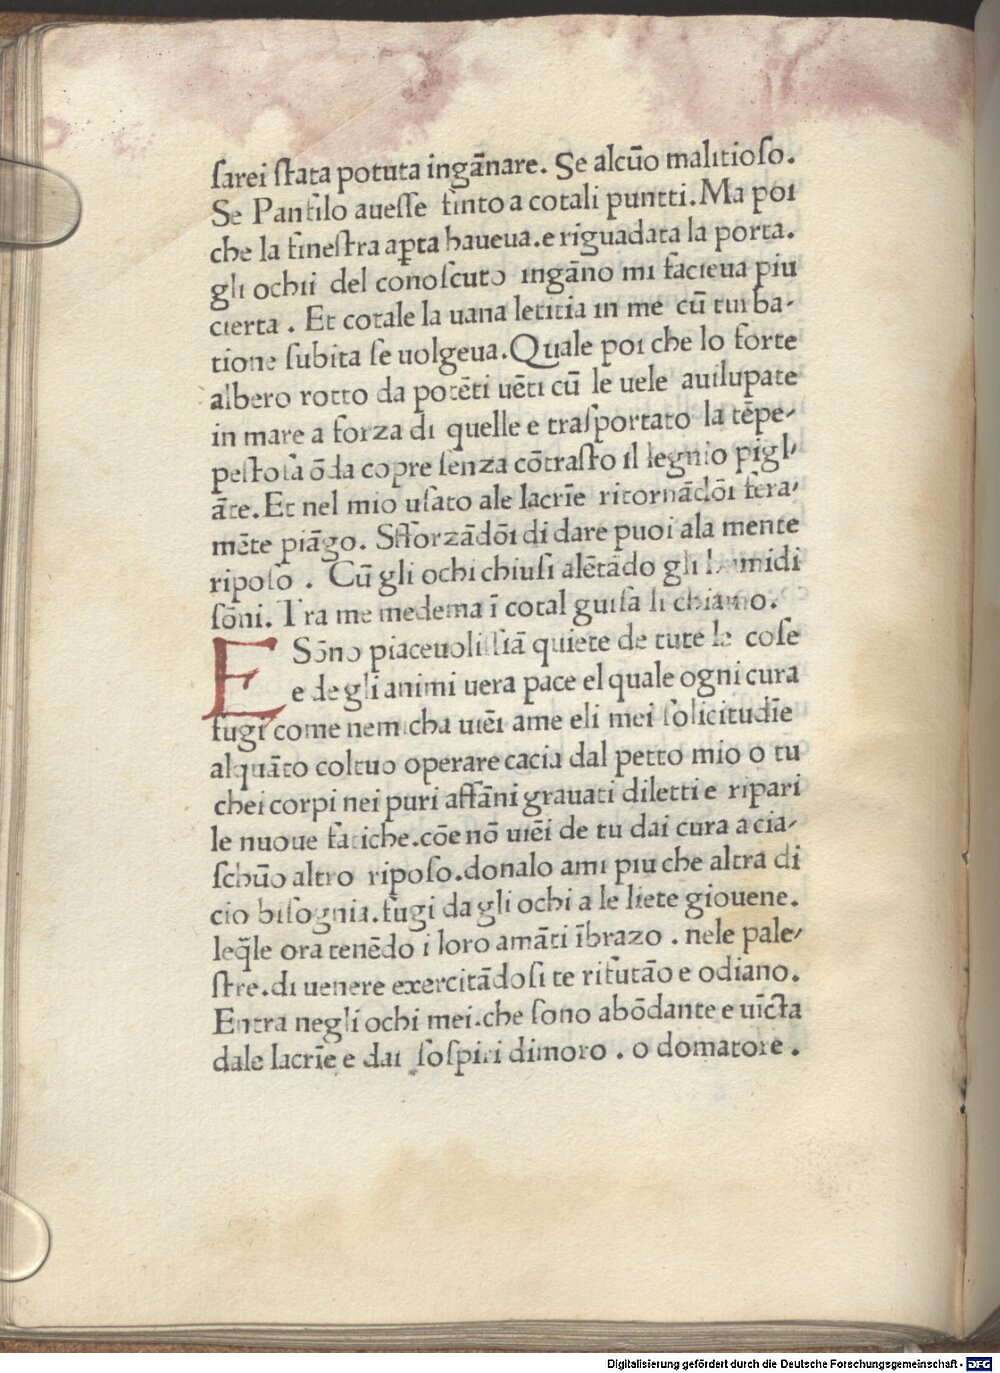 ſarei ſtata potuta ingãnare. Se alcũo malitioſo.
Se Panfilo aueſſe finto a cotali puntti. Ma poi
che la fineſtra apta haueua. e riguadata la porta.
gli ochii del conoſcuto ingãno mi facieua piu
cierta. Et cotale la uana letitia in me cũ tur ba-
tione ſubita ſe uolgeua. Quale poi che lo forte
albero rotto da potẽti uẽti cũ le uele auilupate
in mare a forza di quelle e traſportato la tẽpe-
peſtoſa õda copre ſenza cõtraſto il legnio pigl-
ãte. Et nel mio uſato ale lacrĩe ritornãdõi fera-
mẽte piãgo. Sfforzãdõi di dare puoi ala mente
ripoſo. Cũ gli ochi chiuſi alẽtãdo gli humidi
ſõni. Tra me medema ĩ cotal guiſa li chiamo.
E Sõno piaceuoliſſiã quiete de tute le coſe
e de gli animi uera pace el quale ogni cura
fugi come nemicha uiẽi ame e li mei ſolicitudĩe
alquãto col tuo operare cacia dal petto mio o tu
che i corpi nei puri affãni grauati diletti e ripari
le nuoue fatiche. cõe nõ uiẽi de tu dai cura a cia-
ſchũo altro ripoſo. donalo ami piu che altra di
cio biſognia. fugi da gli ochi a le liete giouene.
leq̃le ora tenẽdo i loro amãti ĩbrazo. nele pale-
ſtre. di uenere exercitãdoſi te rifutão e odiano.
Entra negli ochi mei. che ſono abõdante e uĩcta
dale lacrĩe e dai ſoſpiri dimoro. o domatore.
Digitalisierung gefördert durch die Deutsche Forschungsgemeinschaft - DFG